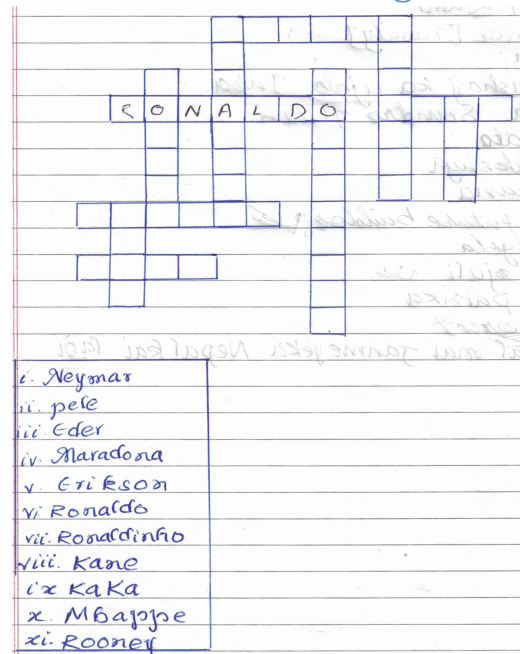 RONALDO
i. Neymar
ii. pele
iii. Eder
iv. Maradona
v. Erikson
vi. Ronaldo
vii. Ronaldinho
viii. Kane
ix Kaka
x. Mbappe
xi. Rooney